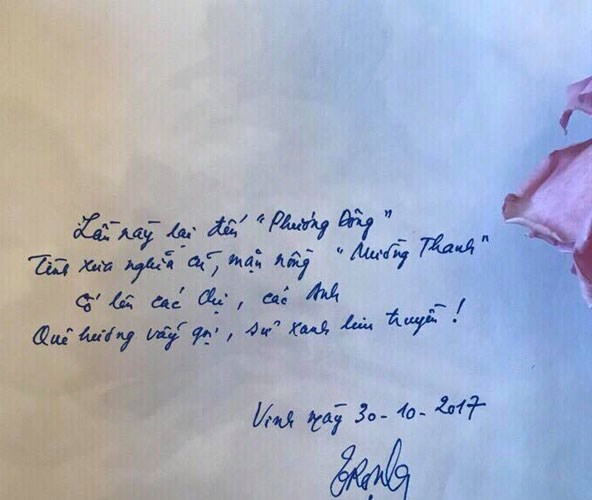 Lần này lại đến "Phương Đông"
Tình xưa nghĩa cũ, mặn nồng "Mường Thanh"
Cố lên các Chị, các Anh
Quê hương vẫy gọi, sử xanh lưu truyền!
Vinh ngày 30-10-2017